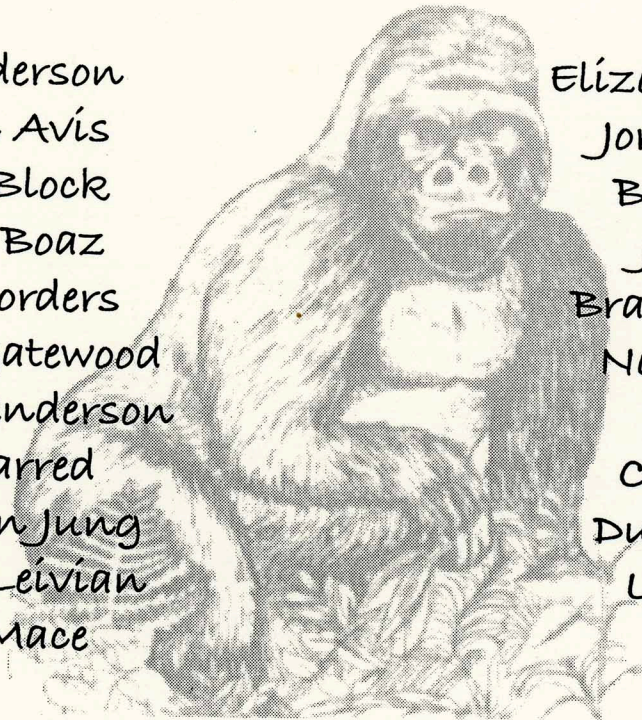 derson
Avis
Block
Boaz
orders
atewood
enderson
arred
n Jung
Leivian
Mace
Eliza
Jor
B
J
Bra
No
C
Du
L